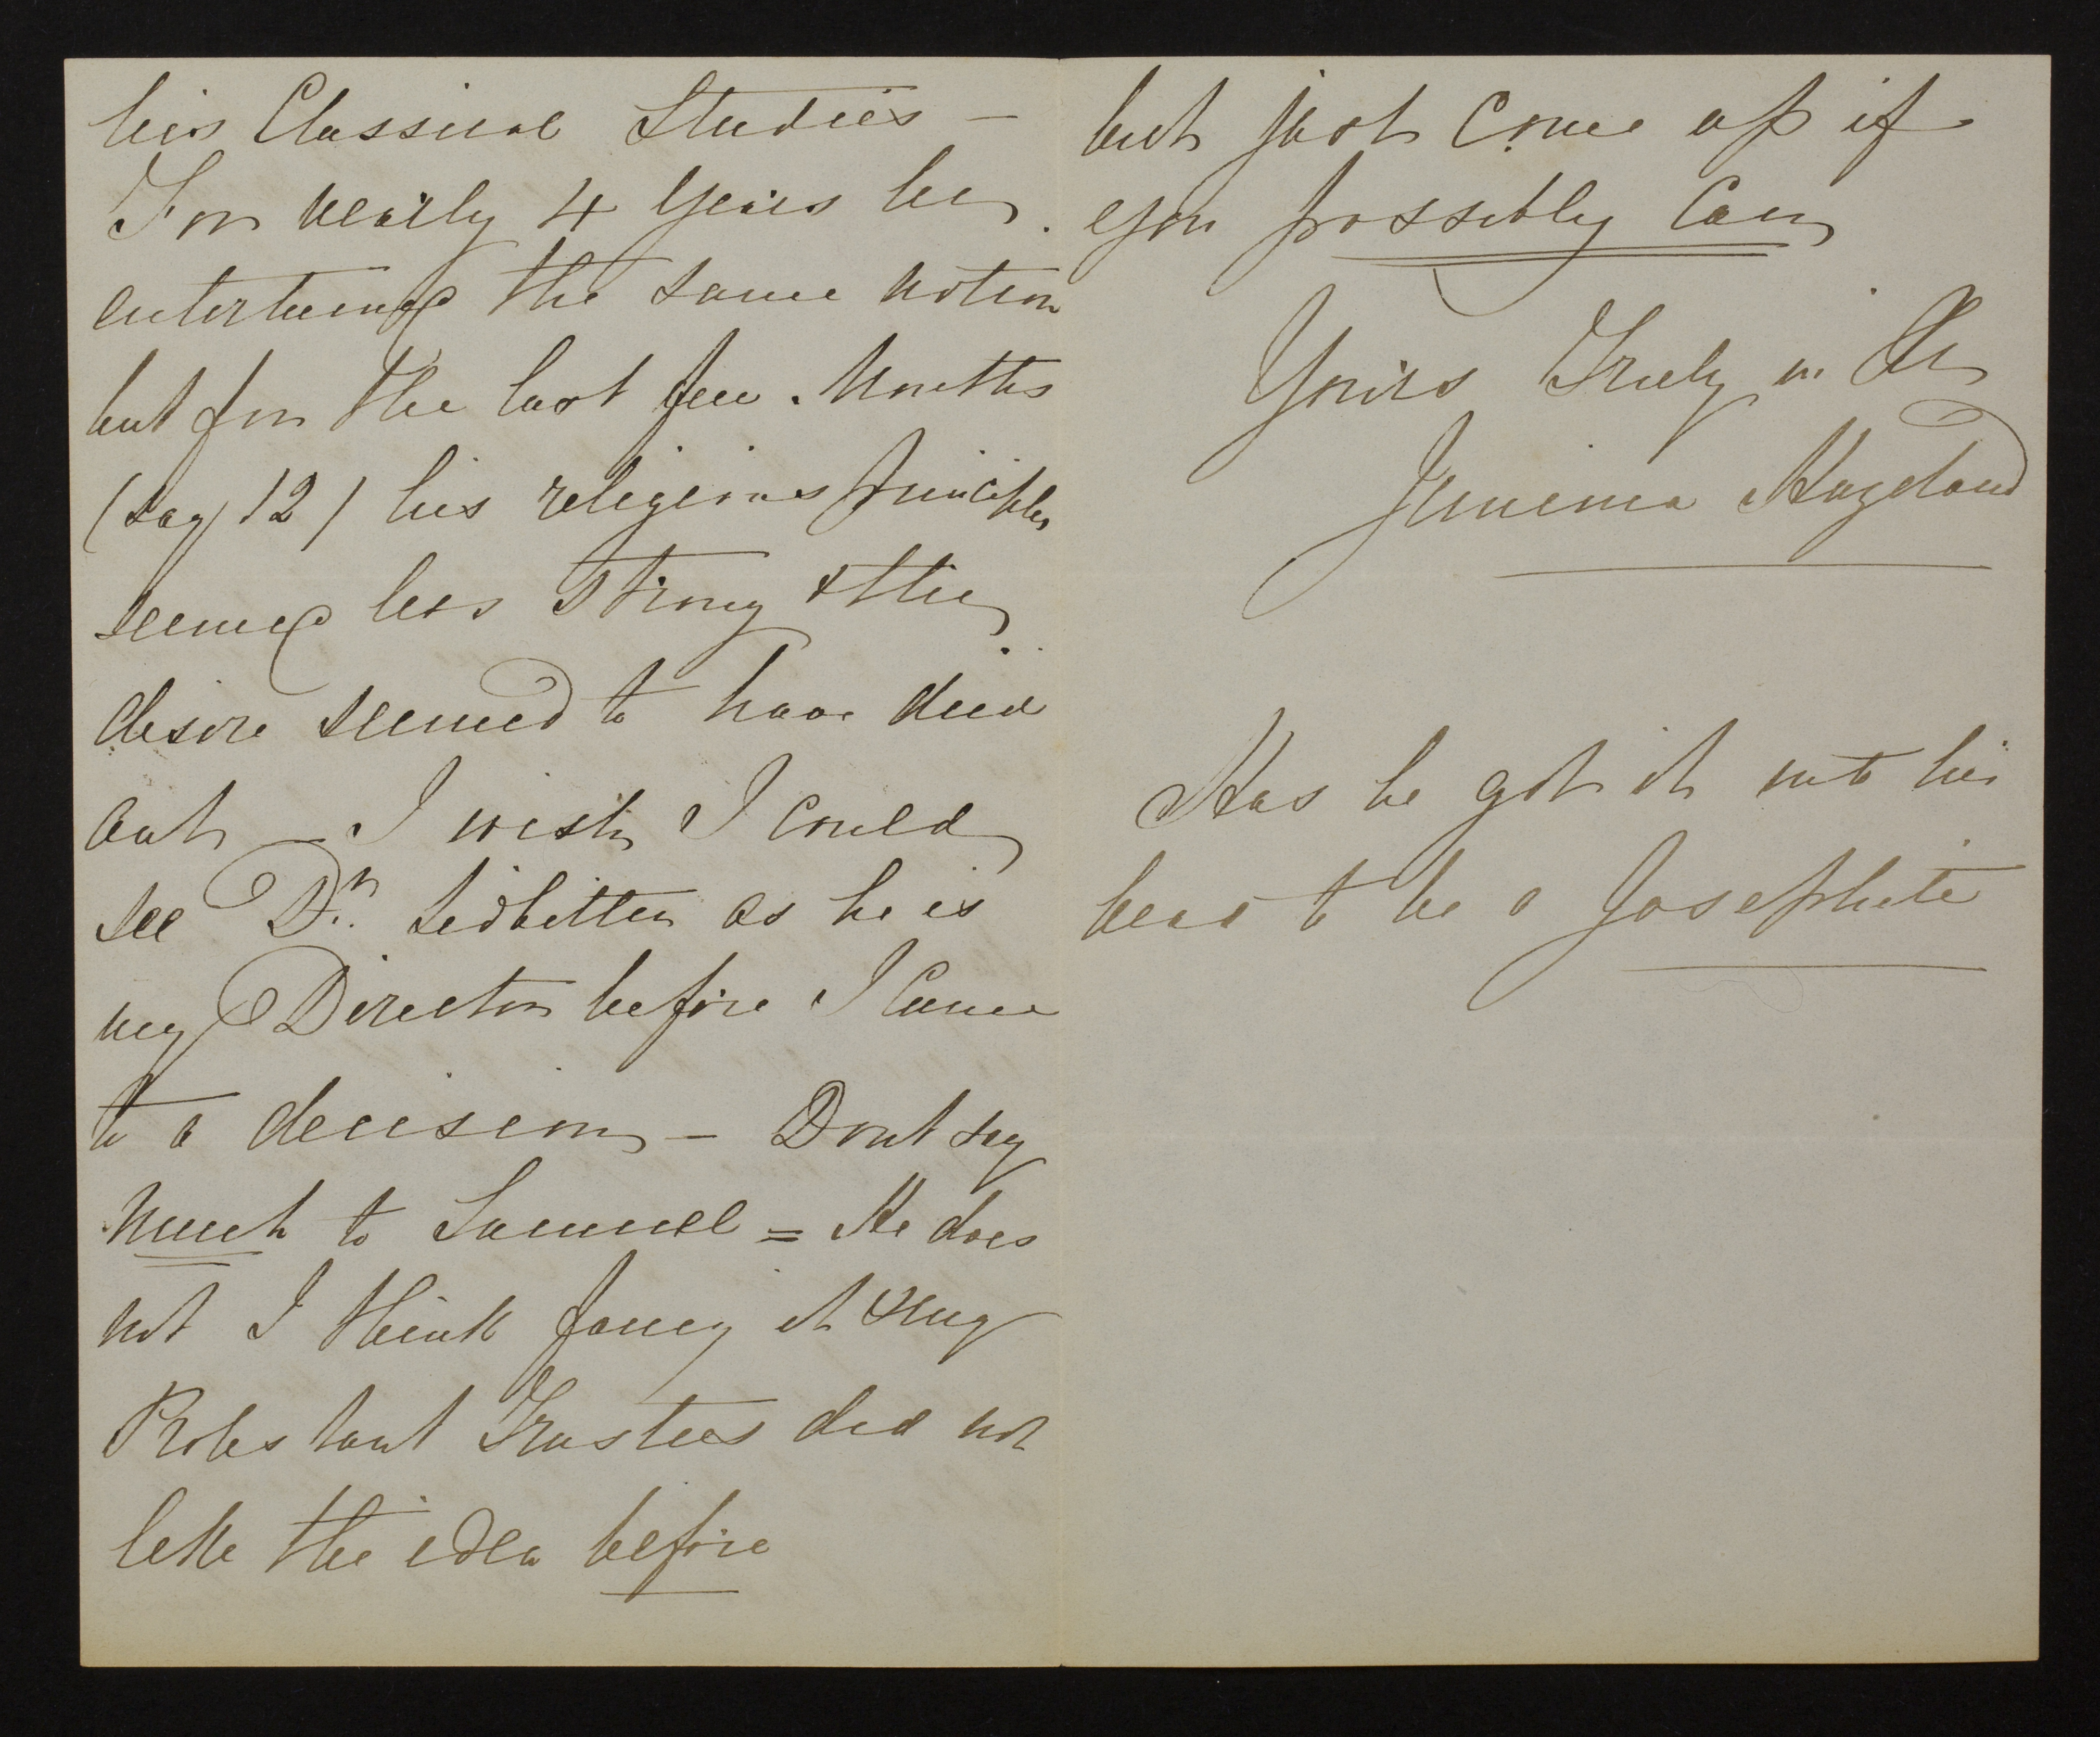 his Classical Studies –
For nearly 4 Years he
entertained the same notion
but for the last few Months
(say 12) his religious principles
seemed less strong & this
desire seemed to have died
out – I wish I could
see Dr. Ledbitter as he is
my Director before I Come
to a decision – Dont say
much to Samuel = He does
not I think fancy it & my
Protestant Trustees did not
like the idea before
but just Come up if
you possibly Can
Yours Truly in
Jemima
Has he got it into his
head to be a Josephite